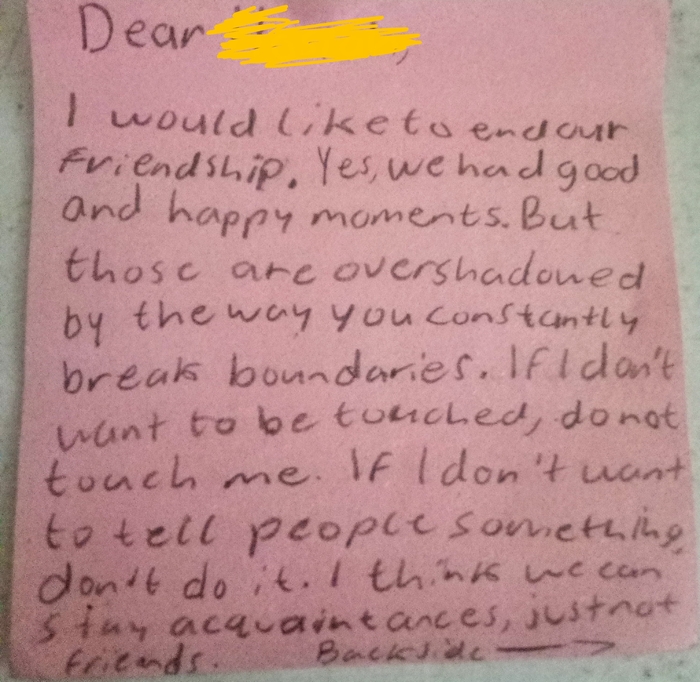 Dear
I would like to end our
friendship. Yes, we had good
and happy moments. But
those are overshadowed
by the way you constantly
break boundaries. If I don't
want to be touched, do not
touch me. If I don't want
to tell people something,
don't do it. I think we can
stay acquaintances, just not
friends. Backside →